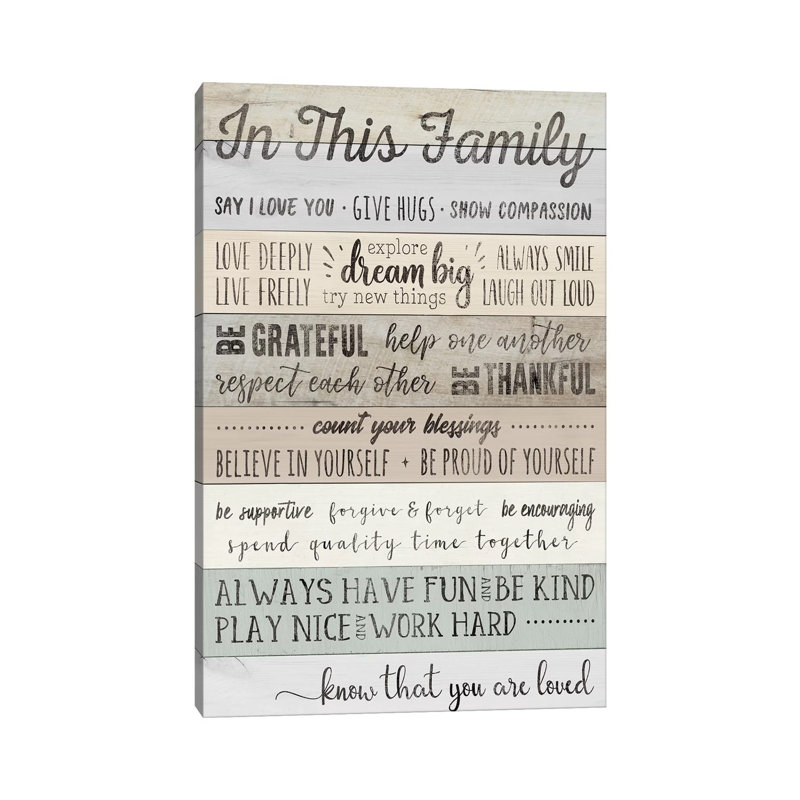 In This Family
SAY I LOVE YOU · GIVE HUGS · SHOW COMPASSION
LOVE DEEPLY
LIVE FREELY
explore
dream big
try new things
ALWAYS SMILE
LAUGH OUT LOUD
BE GRATEFUL help one another
respect each other BE THANKFUL
count your blessings
BELIEVE IN YOURSELF + BE PROUD OF YOURSELF
be supportive forgive & forget be encouraging
spend quality time together
ALWAYS HAVE FUN AND BE KIND
PLAY NICE AND WORK HARD
know that you are loved